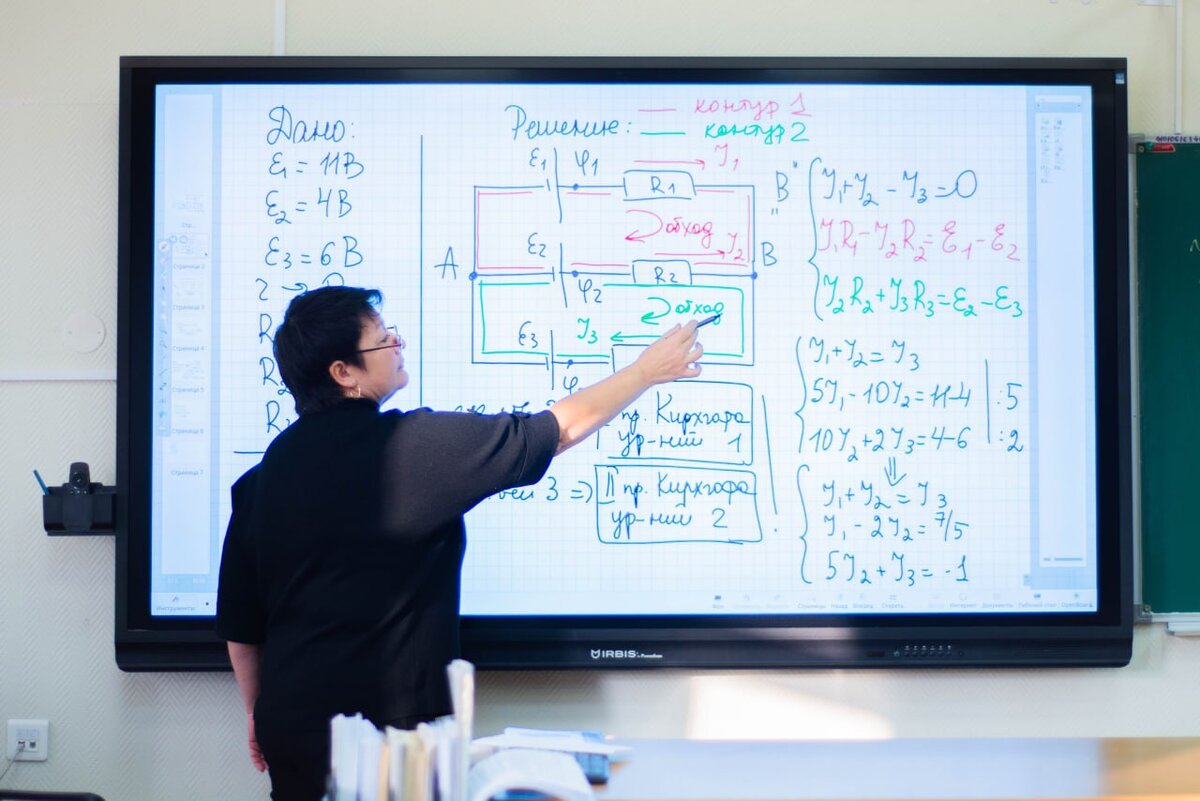 Дано:
ε₁ = 11В
ε₂ = 4В
ε₃ = 6В
Решение:
контур 1
контур 2
ε₁ φ₁ R₁ I₁
обход
A ε₂ φ₂ R₂ I₂ B
обход
ε₃ I₃
пр. Кирхгофа
ур-ний 1
3 => II пр. Кирхгофа
ур-ний 2
"B"
I₁ + I₂ - I₃ = 0
I₁R₁ - I₂R₂ = ε₁ - ε₂
I₂R₂ + I₃R₃ = ε₂ - ε₃
I₁ + I₂ = I₃
5I₁ - 10I₂ = 11-4 | :5
10I₂ + 2I₃ = 4-6 | :2
⇓
I₁ + I₂ = I₃
I₁ - 2I₂ = 7/5
5I₂ + I₃ = -1
Страница 2
Страница 5
Страница 6
Страница 7
Инструменты
IRBIS